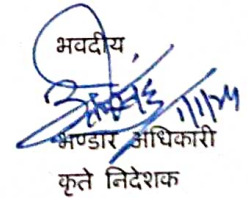 भवदीय
1/1/24
भण्डार अधिकारी
कृते निदेशक